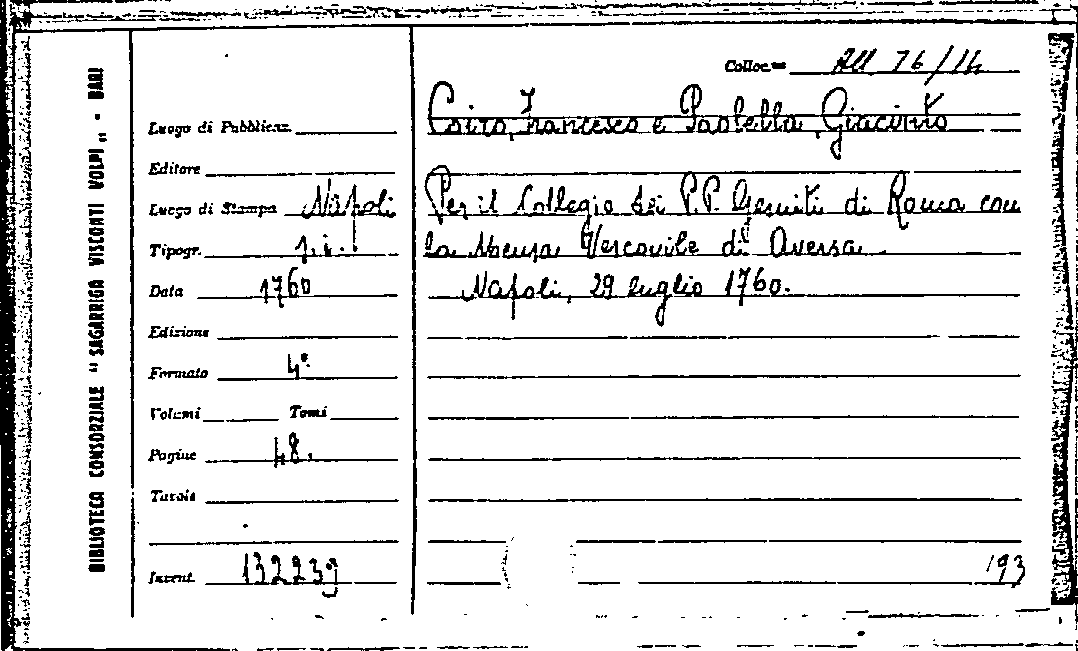 BIBLIOTECA CONSORZIALE "SAGARRIGA VISCONTI VOLPI„ - BARI
Colloc.ne All 76/14
Luogo di Pubblicaz.
Francesco e Paolella, Giacinto
Editore
Luogo di Stampa Napoli
Per il Collegio dei P.P. Gesuiti di Roma con
Tipogr. s.i.t.
la Mensa Vescovile di Aversa
Data 1760
Napoli, 29 luglio 1760.
Edizione
Formato 4°
Volumi Tomi
Pagine 48.
Tavole
Invent. 132239
193